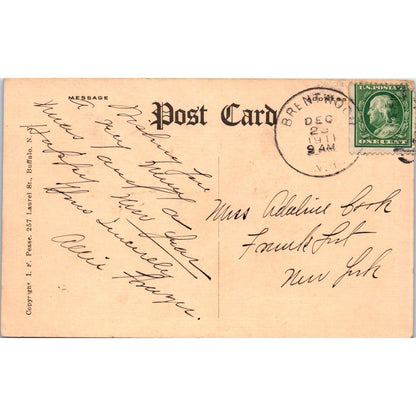 MESSAGE
Post Card
ADDRESS
BRENTWOOD
DEC
23
1911
9 AM
N.Y.
U.S. POSTAGE
ONE CENT
Wishing you
a very Merry
Xmas and a
Happy New Year
Yours Sincerely
Allie
Miss Adaline Cook
Frankfort
New York
Copyright I. F. Pease, 257 Laurel St., Buffalo, N.